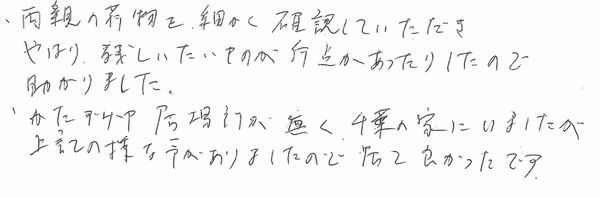 ・両親の荷物を細かく確認していただき
やはり、残しいたいものが何点かあったりしたので
助かりました。
・かたづけ中居場所が無く千葉の家にいましたが
上記の様な事がありましたので 居て良かったです